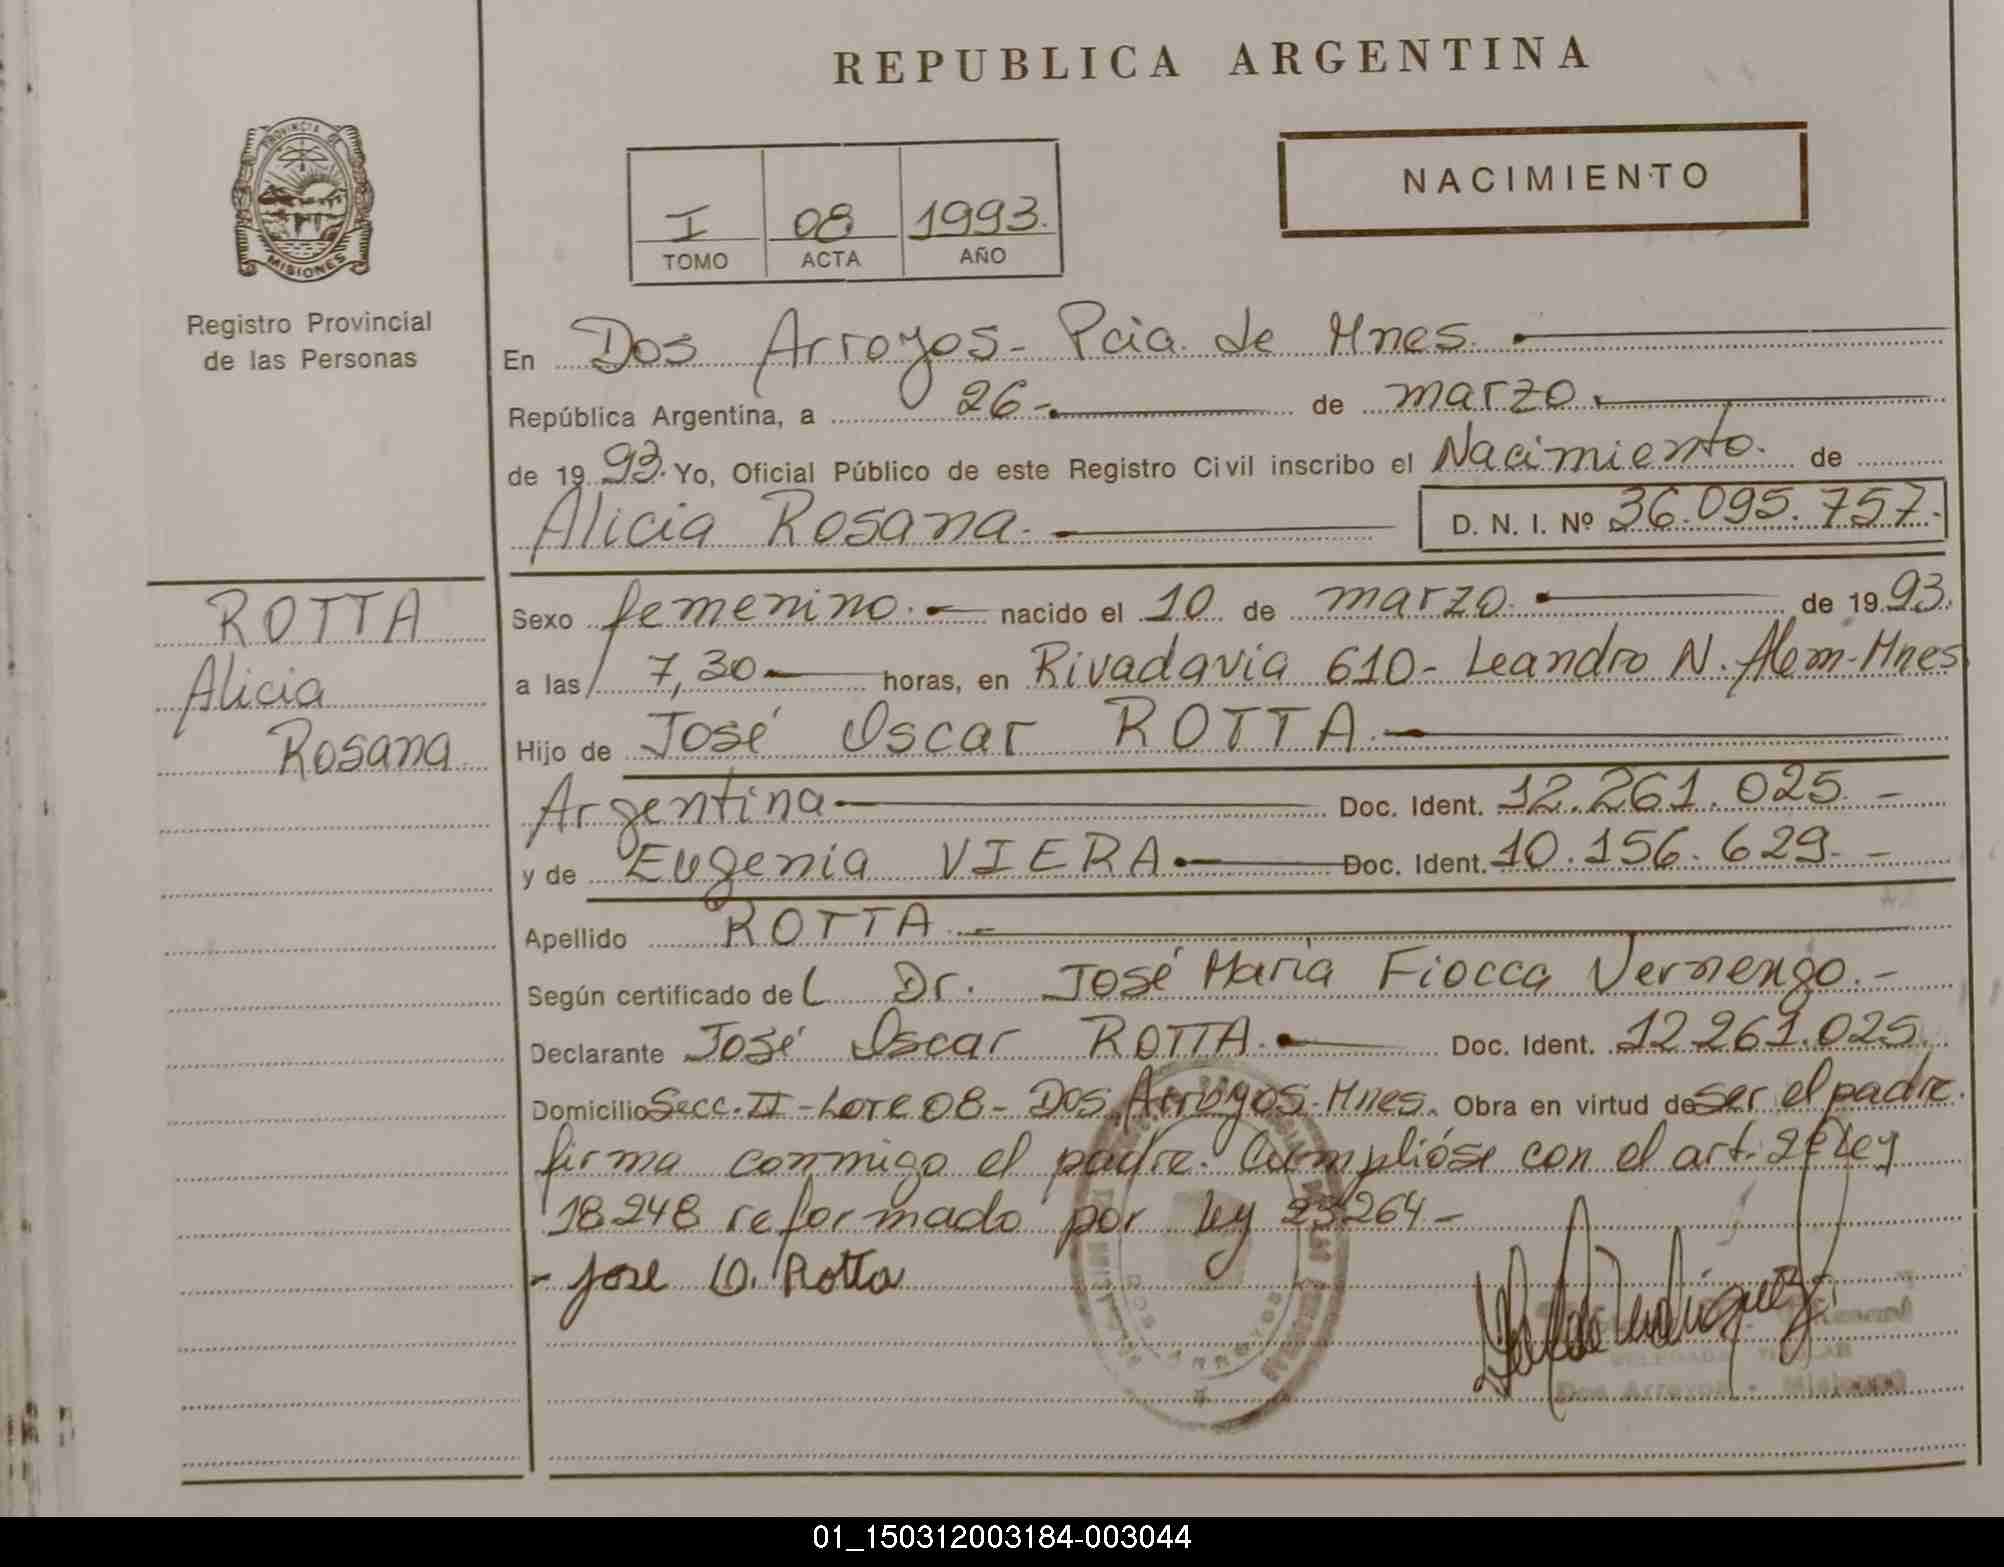 REPUBLICA ARGENTINA
PROVINCIA DE
MISIONES
Registro Provincial
de las Personas
I 08 1993.
TOMO ACTA AÑO
NACIMIENTO
En Dos Arroyos - Pcia. de Mnes.
República Argentina, a 26 - de marzo.
de 19 93. Yo, Oficial Público de este Registro Civil inscribo el Nacimiento. de
Alicia Rosana. D. N. I. Nº 36.095.757.-
ROTTA
Alicia
Rosana
Sexo femenino. nacido el 10 de marzo. de 19 93.
a las 7,30 horas, en Rivadavia 610 - Leandro N. Alem - Mnes
Hijo de José Oscar ROTTA.
Argentina Doc. Ident. 12.261.025. -
y de Eugenia VIERA Doc. Ident. 10.156.629. -
Apellido ROTTA.
Según certificado del Dr. José María Fiocca Vernengo. -
Declarante José Oscar ROTTA. Doc. Ident. 12.261.025.
Domicilio Secc. II - Lote 08 - Dos Arroyos - Mnes. Obra en virtud de ser el padre.
firma conmigo el padre. Cumplióse con el art. 2º Ley
18.248 reformado por Ley 23.264 -
- Jose O. Rotta
Dos Arroyos - Misiones
01_150312003184-003044